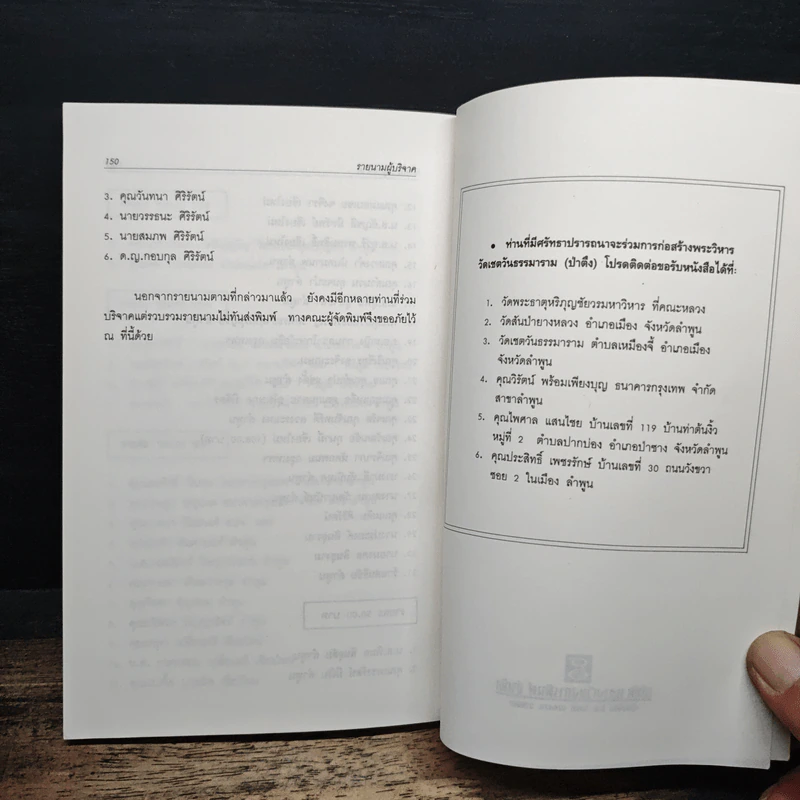 150
รายนามผู้บริจาค
3. คุณวันทนา ศิริรัตน์
4. นายวรรธนะ ศิริรัตน์
5. นายสมภพ ศิริรัตน์
6. ด.ญ.กอบกุล ศิริรัตน์
นอกจากรายนามตามที่กล่าวมาแล้ว ยังคงมีอีกหลายท่านที่ร่วม
บริจาคแต่รวบรวมรายนามไม่ทันส่งพิมพ์ ทางคณะผู้จัดพิมพ์จึงขออภัยไว้
ณ ที่นี้ด้วย
• ท่านที่มีศรัทธาปรารถนาจะร่วมการก่อสร้างพระวิหาร
วัดเชตวันธรรมาราม (ป่าตึง) โปรดติดต่อขอรับหนังสือได้ที่:
1. วัดพระธาตุหริภุญชัยวรมหาวิหาร ที่คณะหลวง
2. วัดสันป่ายางหลวง อำเภอเมือง จังหวัดลำพูน
3. วัดเชตวันธรรมาราม ตำบลเหมืองจี้ อำเภอเมือง
จังหวัดลำพูน
4. คุณวิรัตน์ พร้อมเพียงบุญ ธนาคารกรุงเทพ จำกัด
สาขาลำพูน
5. คุณไพศาล แสนไชย บ้านเลขที่ 119 บ้านท่าต้นงิ้ว
หมู่ที่ 2 ตำบลปากบ่อง อำเภอป่าซาง จังหวัดลำพูน
6. คุณประสิทธิ์ เพชรรักษ์ บ้านเลขที่ 30 ถนนวังขวา
ซอย 2 ในเมือง ลำพูน